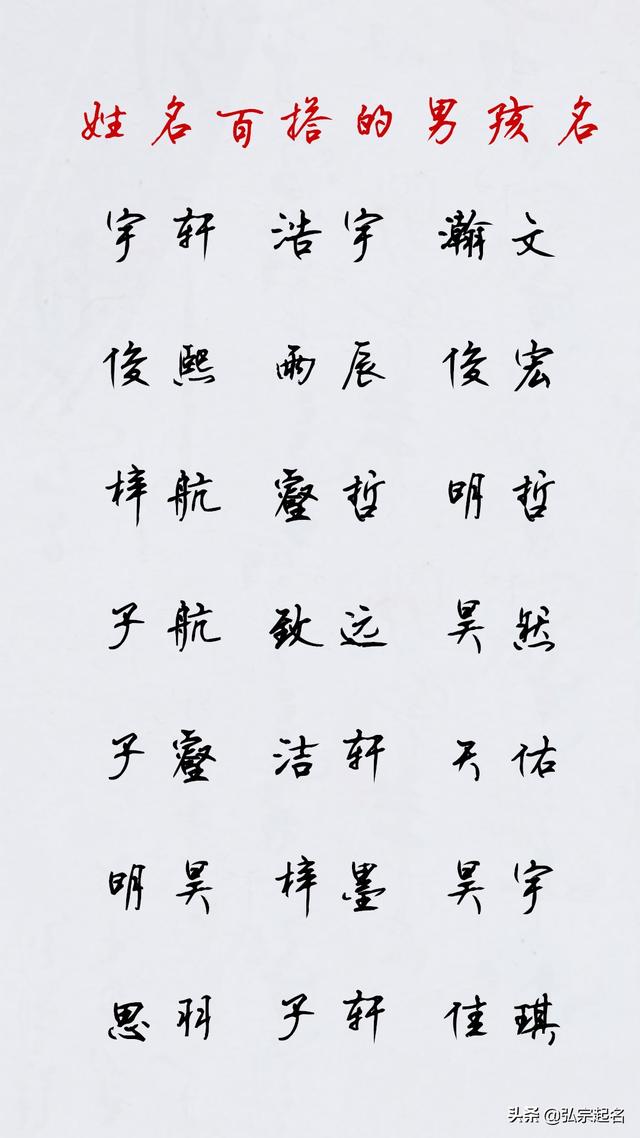 姓名百搭的男孩名
宇轩 浩宇 瀚文
俊熙 雨辰 俊宏
梓航 睿哲 明哲
子航 致远 昊然
子睿 洁轩 天佑
明昊 梓墨 昊宇
思羽 子轩 佳琪
头条 @弘宗起名